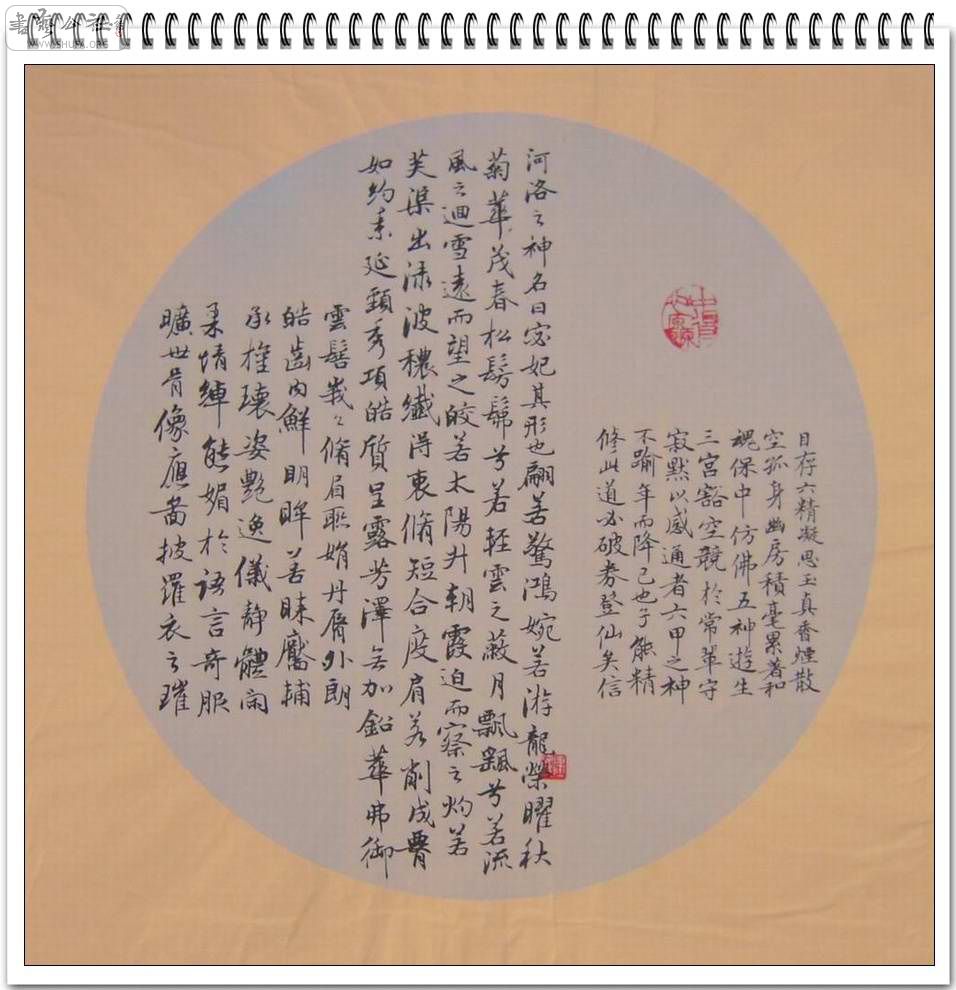 書艺公社
WWW.SHUFA.ORG
日存六精凝思玉真香煙散
空孤身幽房積毫累著和
魂保中仿佛五神遊生
三宮豁空競於常輩守
寂默以感通者六甲之神
不踰年而降己也子能精
修此道必破券登仙矣信
河洛之神名曰宓妃其形也翩若驚鴻婉若游龍榮曜秋
菊華茂春松髣髴兮若輕雲之蔽月飄飖兮若流
風之迴雪遠而望之皎若太陽升朝霞迫而察之灼若
芙蕖出淥波穠纖得衷脩短合度肩若削成署
如約素延頸秀項皓質呈露芳澤無加鉛華弗御
雲髻峩々脩眉聯娟丹脣外朗
皓齒內鮮明眸善睞靨輔
承權瓌姿艷逸儀靜體閑
柔情綽態媚於語言奇服
曠世骨像應圖披羅衣之璀